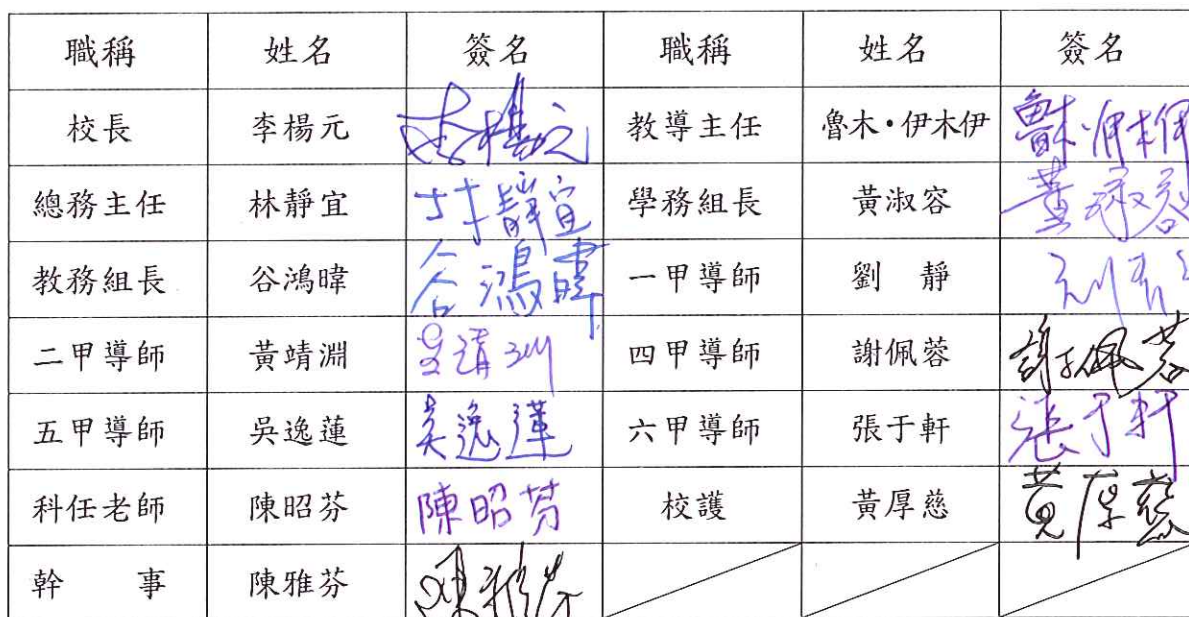 職稱 姓名 簽名 職稱 姓名 簽名
校長 李楊元 李楊元 教導主任 魯木·伊木伊 魯木·伊木伊
總務主任 林靜宜 林靜宜 學務組長 黃淑容 黃淑容
教務組長 谷鴻暐 谷鴻暐 一甲導師 劉 靜
二甲導師 黃靖淵 四甲導師 謝佩蓉 謝佩蓉
五甲導師 吳逸蓮 吳逸蓮 六甲導師 張于軒 張于軒
科任老師 陳昭芬 陳昭芬 校護 黃厚慈 黃厚慈
幹 事 陳雅芬 陳雅芬